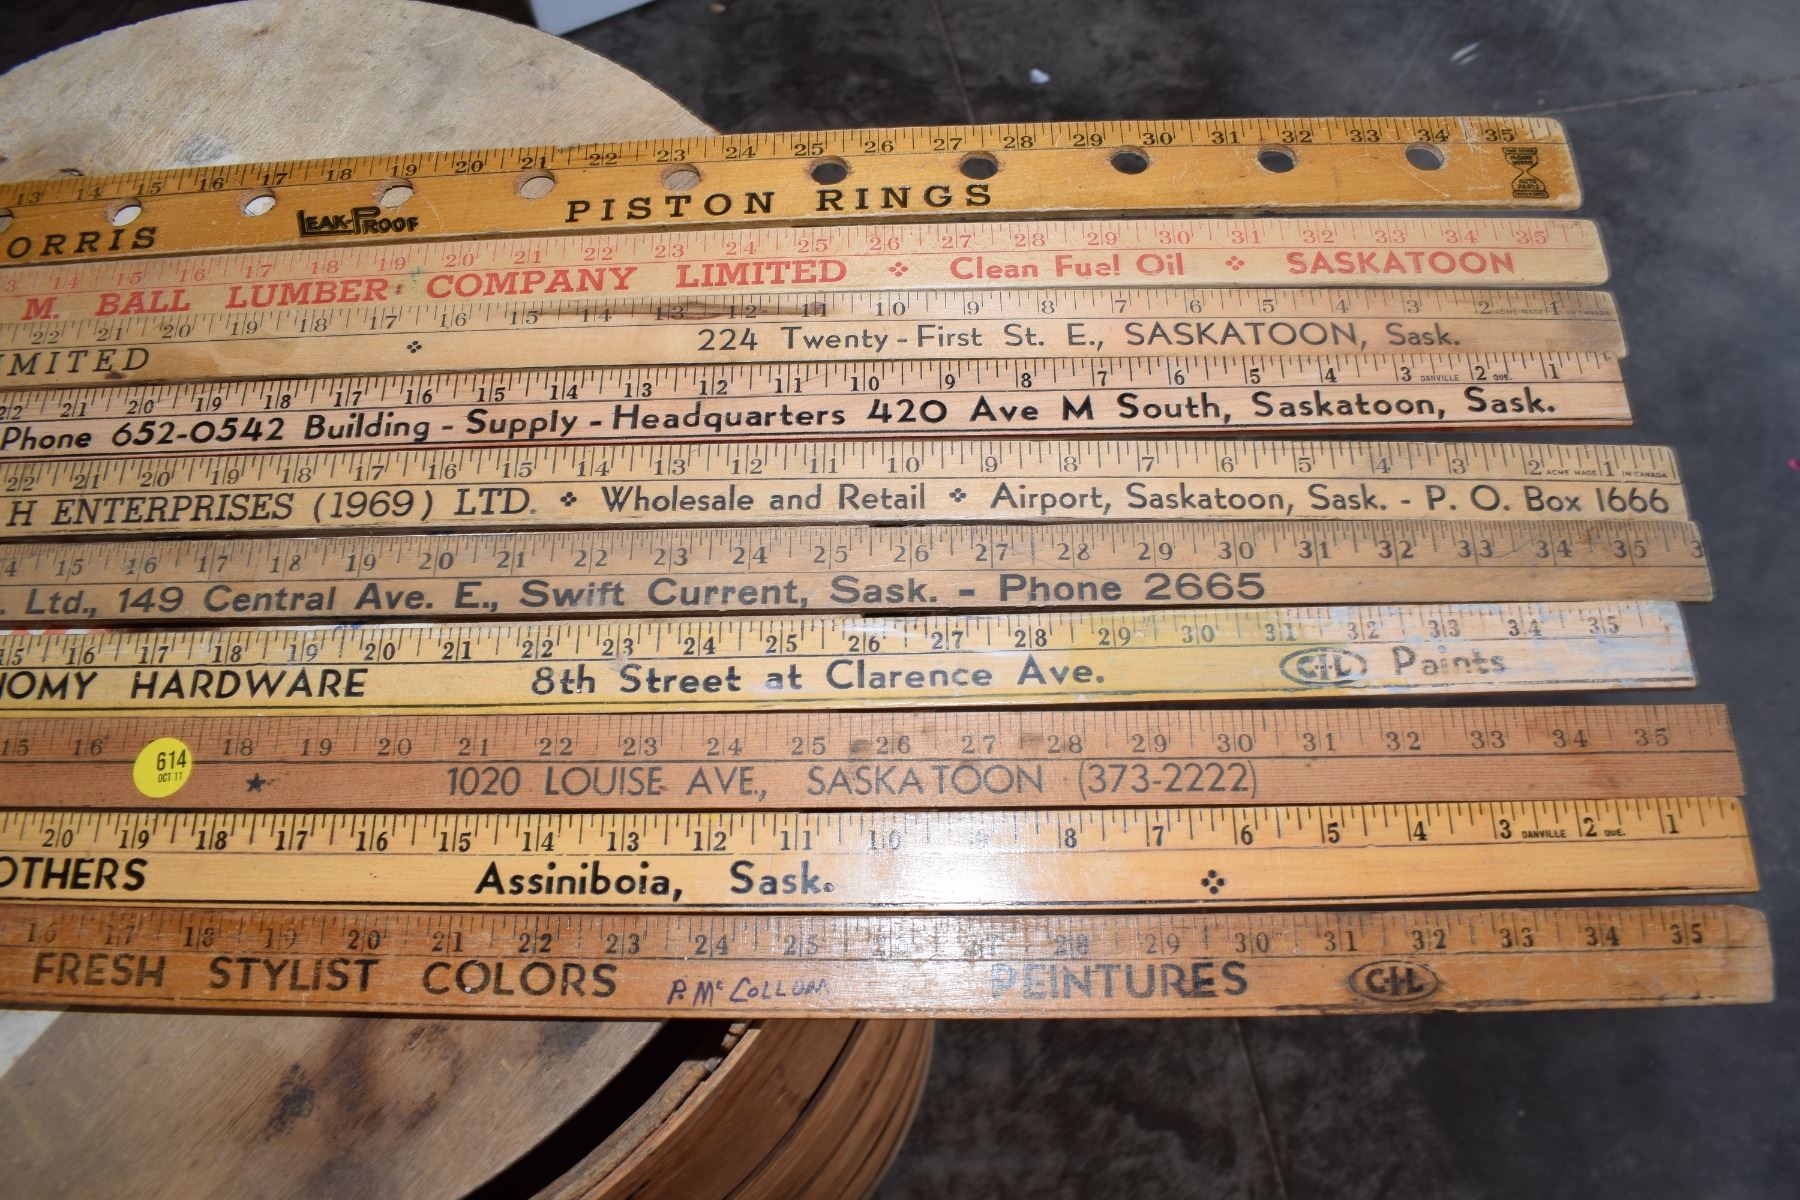 13 14 15 16 17 18 19 20 21 22 23 24 25 26 27 28 29 30 31 32 33 34 35
ORRIS LEAK-PROOF PISTON RINGS AUTO PARTS
3 14 15 16 17 18 19 20 21 22 23 24 25 26 27 28 29 30 31 32 33 34 35
M. BALL LUMBER COMPANY LIMITED Clean Fuel Oil SASKATOON
22 21 20 19 18 17 16 15 14 13 12 11 10 9 8 7 6 5 4 3 2 ACME-MADE 1 IN CANADA
IMITED 224 Twenty-First St. E., SASKATOON, Sask.
22 21 20 19 18 17 16 15 14 13 12 11 10 9 8 7 6 5 4 3 DANVILLE 2 QUE. 1
Phone 652-0542 Building - Supply - Headquarters 420 Ave M South, Saskatoon, Sask.
22 21 20 19 18 17 16 15 14 13 12 11 10 9 8 7 6 5 4 3 2 ACME MADE 1 IN CANADA
H ENTERPRISES (1969) LTD. Wholesale and Retail Airport, Saskatoon, Sask. - P. O. Box 1666
4 15 16 17 18 19 20 21 22 23 24 25 26 27 28 29 30 31 32 33 34 35 3
. Ltd., 149 Central Ave. E., Swift Current, Sask. - Phone 2665
15 16 17 18 19 20 21 22 23 24 25 26 27 28 29 30 31 32 33 34 35
NOMY HARDWARE 8th Street at Clarence Ave. C-I-L Paints
15 16 18 19 20 21 22 23 24 25 26 27 28 29 30 31 32 33 34 35
614
OCT 11
1020 LOUISE AVE., SASKATOON (373-2222)
20 19 18 17 16 15 14 13 12 11 10 9 8 7 6 5 4 3 DANVILLE 2 QUE. 1
OTHERS Assiniboia, Sask.
16 17 18 19 20 21 22 23 24 25 28 29 30 31 32 33 34 35
FRESH STYLIST COLORS P. McCOLLOM PEINTURES C-I-L